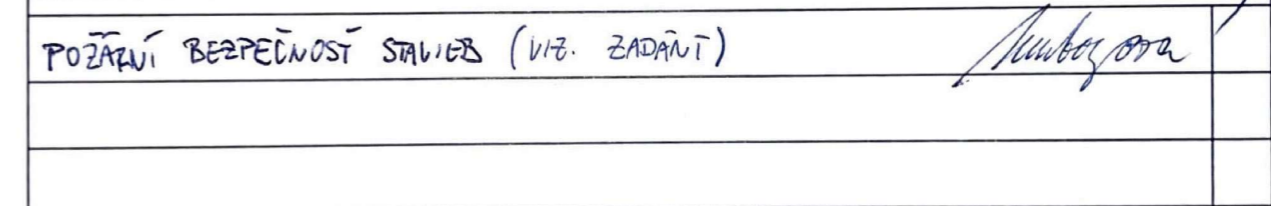 POŽÁRNÍ BEZPEČNOSŤ STAVIEB (VIZ. ZADÁNÍ)